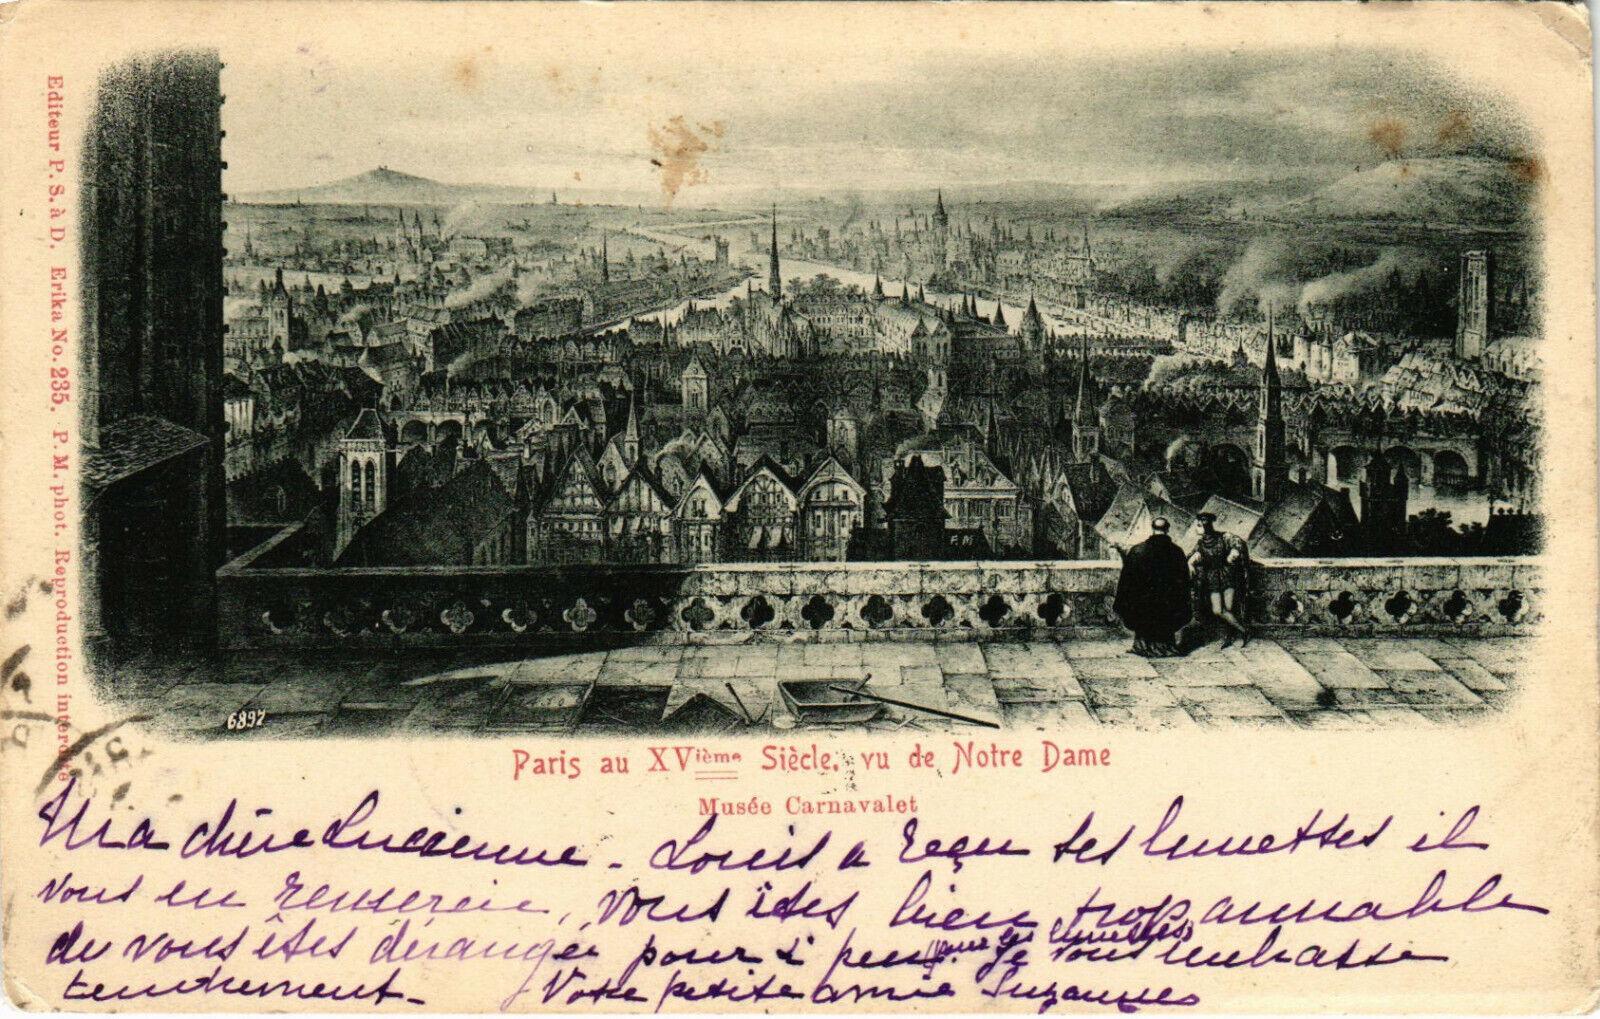 Editeur P. S. à D. Erika No. 235. P. M. phot. Reproduction interdite
F. M
6897
Paris au XVième Siècle. vu de Notre Dame
Musée Carnavalet
Ma chère Lucienne - Louis a reçu ses lunettes il
vous en remercie, vous êtes bien trop aimable
de vous êtes dérangée pour si peu (pour les lunettes) Je vous embrasse
tendrement - Votre petite amie Suzanne